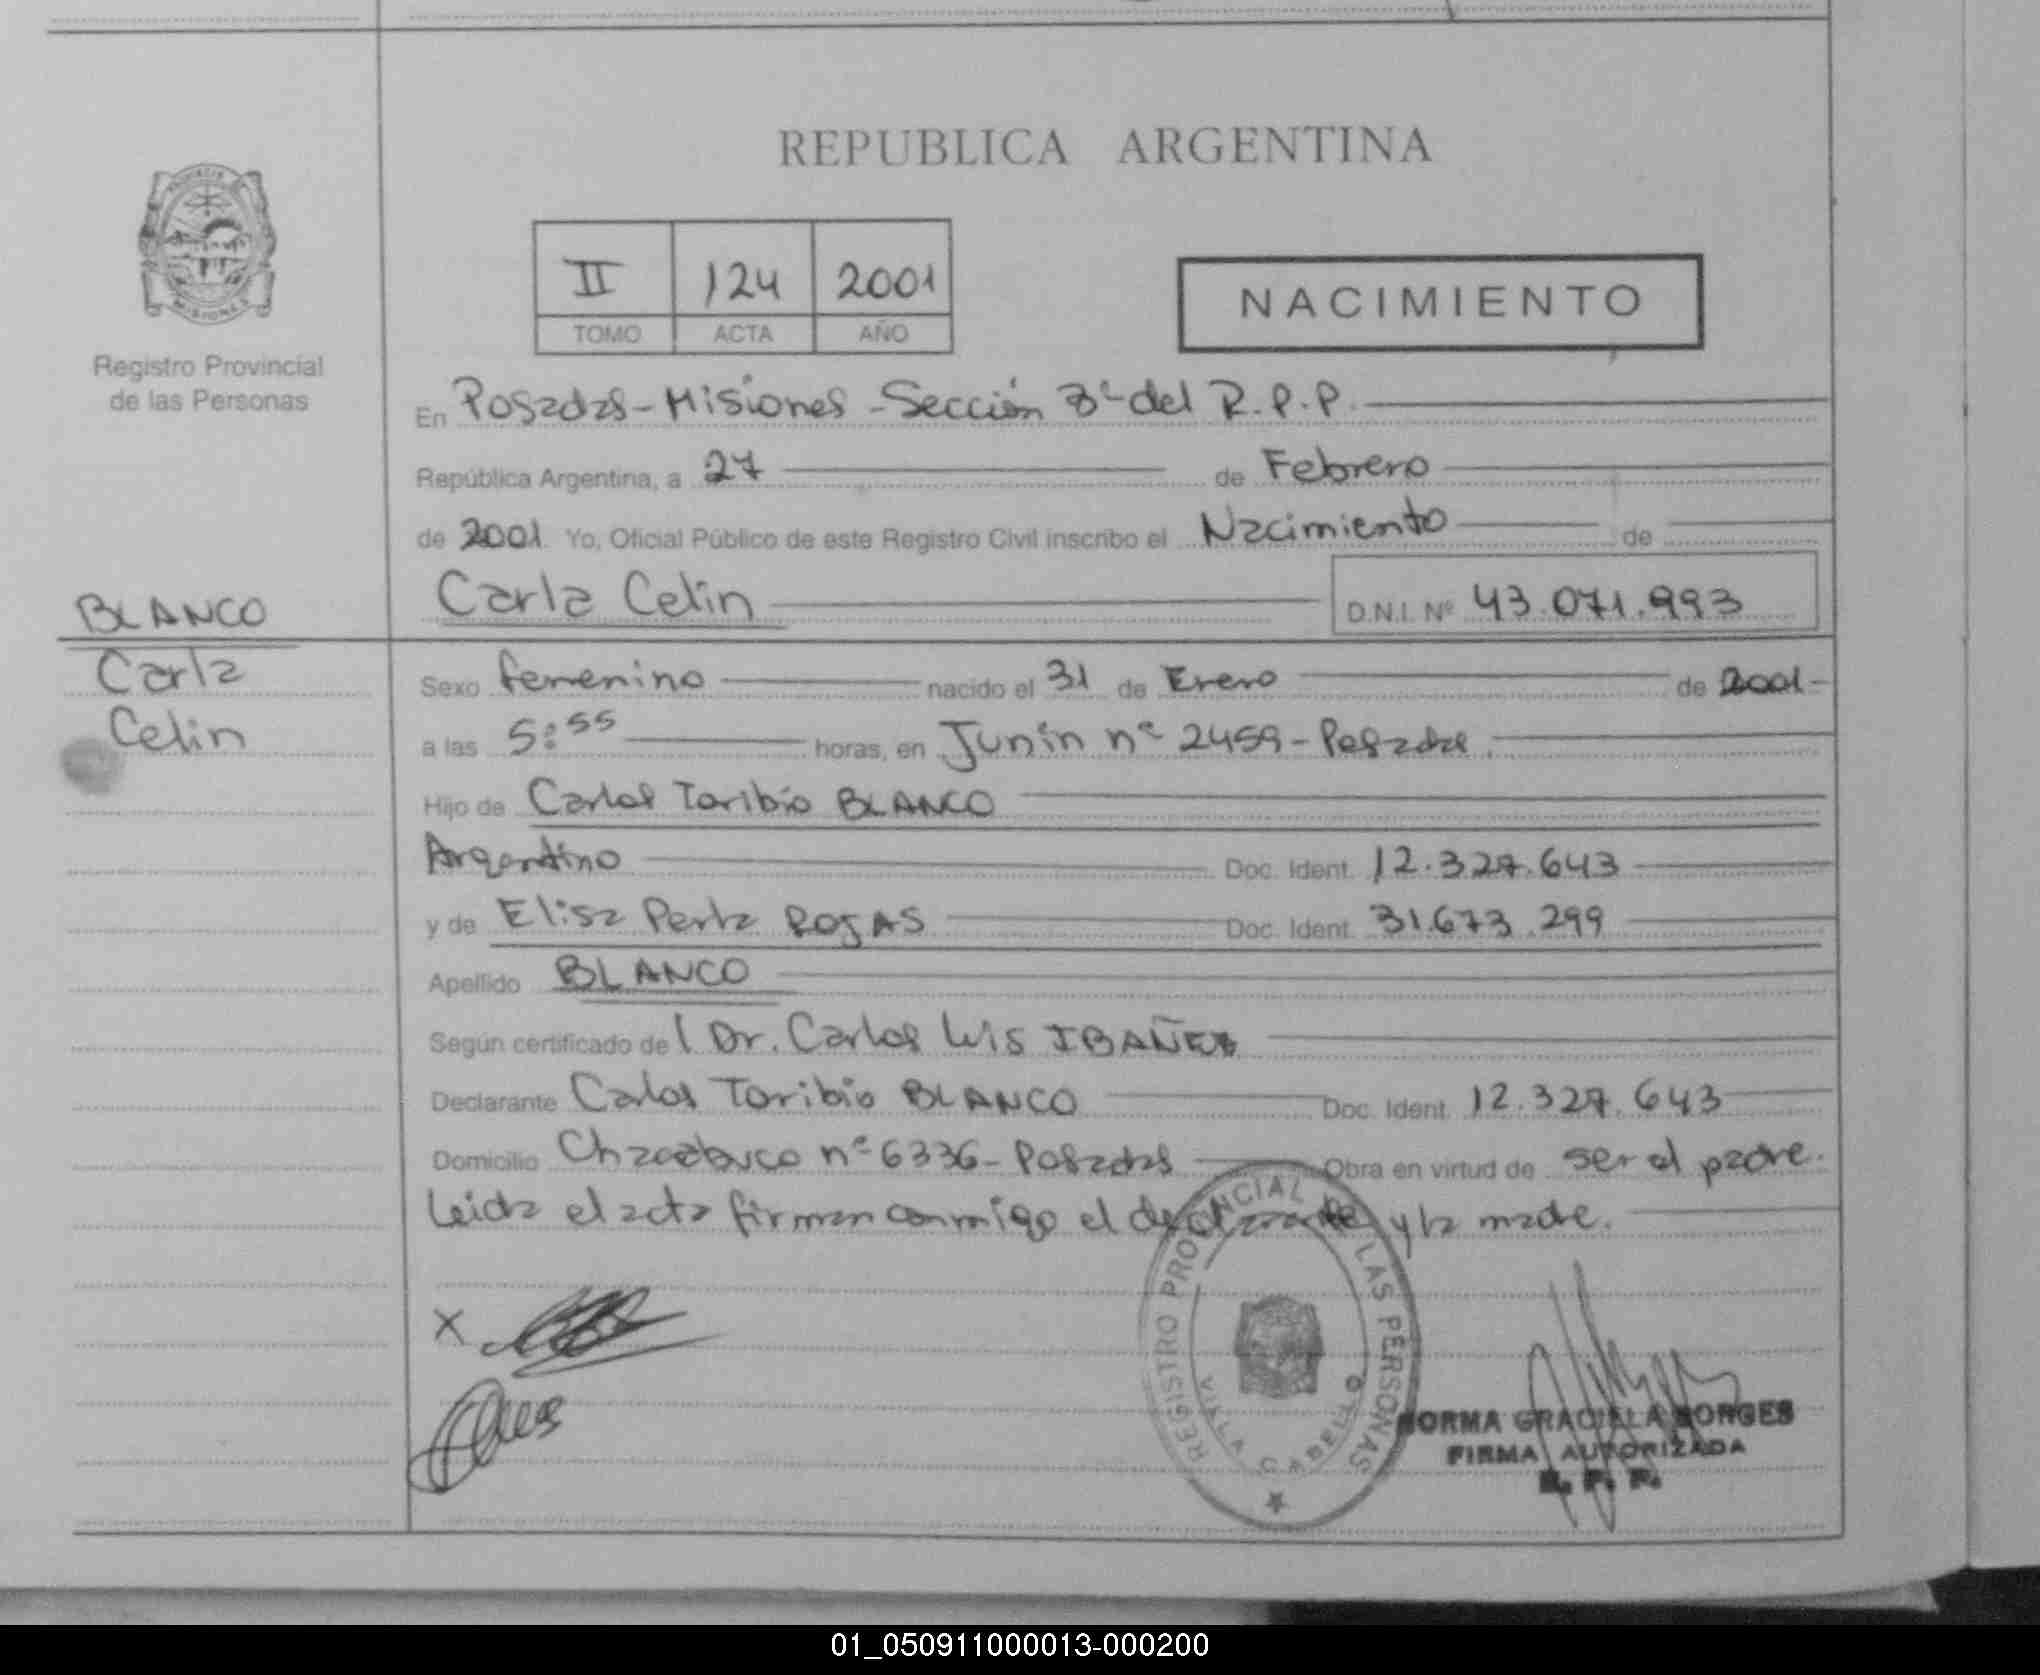 REPUBLICA ARGENTINA
PROVINCIA DE
MISIONES
Registro Provincial
de las Personas
II 124 2001
TOMO ACTA AÑO
NACIMIENTO
En Posadas - Misiones - Sección 3ª del R.P.P.
República Argentina, a 27 de Febrero
de 2001 Yo, Oficial Público de este Registro Civil inscribo el Nacimiento de
Carla Celin D.N.I. Nº 43.071.993
BLANCO
Carla
Celin
Sexo femenino nacido el 31 de Enero de 2001-
a las 5:55 horas, en Junín nº 2459 - Posadas.
Hijo de Carlos Toribio BLANCO
Argentino Doc. Ident. 12.327.643
y de Elisa Perla ROJAS Doc. Ident. 31.673.299
Apellido BLANCO
Según certificado del Dr. Carlos Luis IBAÑEZ
Declarante Carlos Toribio BLANCO Doc. Ident. 12.327.643
Domicilio Chacabuco nº 6336 - Posadas Obra en virtud de ser el padre.
Leida el acta firman conmigo el declarante y la madre.
X
REGISTRO PROVINCIAL DE LAS PERSONAS
VILLA CABELLO
NORMA GRACIELA BORGES
FIRMA AUTORIZADA
R. P. P.
01_050911000013-000200